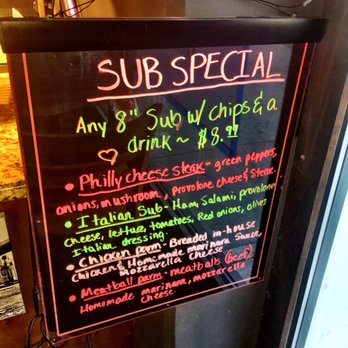 SUB SPECIAL
Any 8" Sub w/ chips & a
drink ~ $8.99
• Philly cheese steak - green peppers,
onions, mushroom, provolone cheese & steak.
• Italian Sub - Ham, Salami, provolone
cheese, lettuce, tomatoes, Red onions, olives
Italian dressing.
• Chicken parm - Breaded in-house
chicken & Homemade marinara sauce,
mozzarella cheese
• Meatball parm - meatballs (beef)
Homemade marinara, mozzarella
cheese.